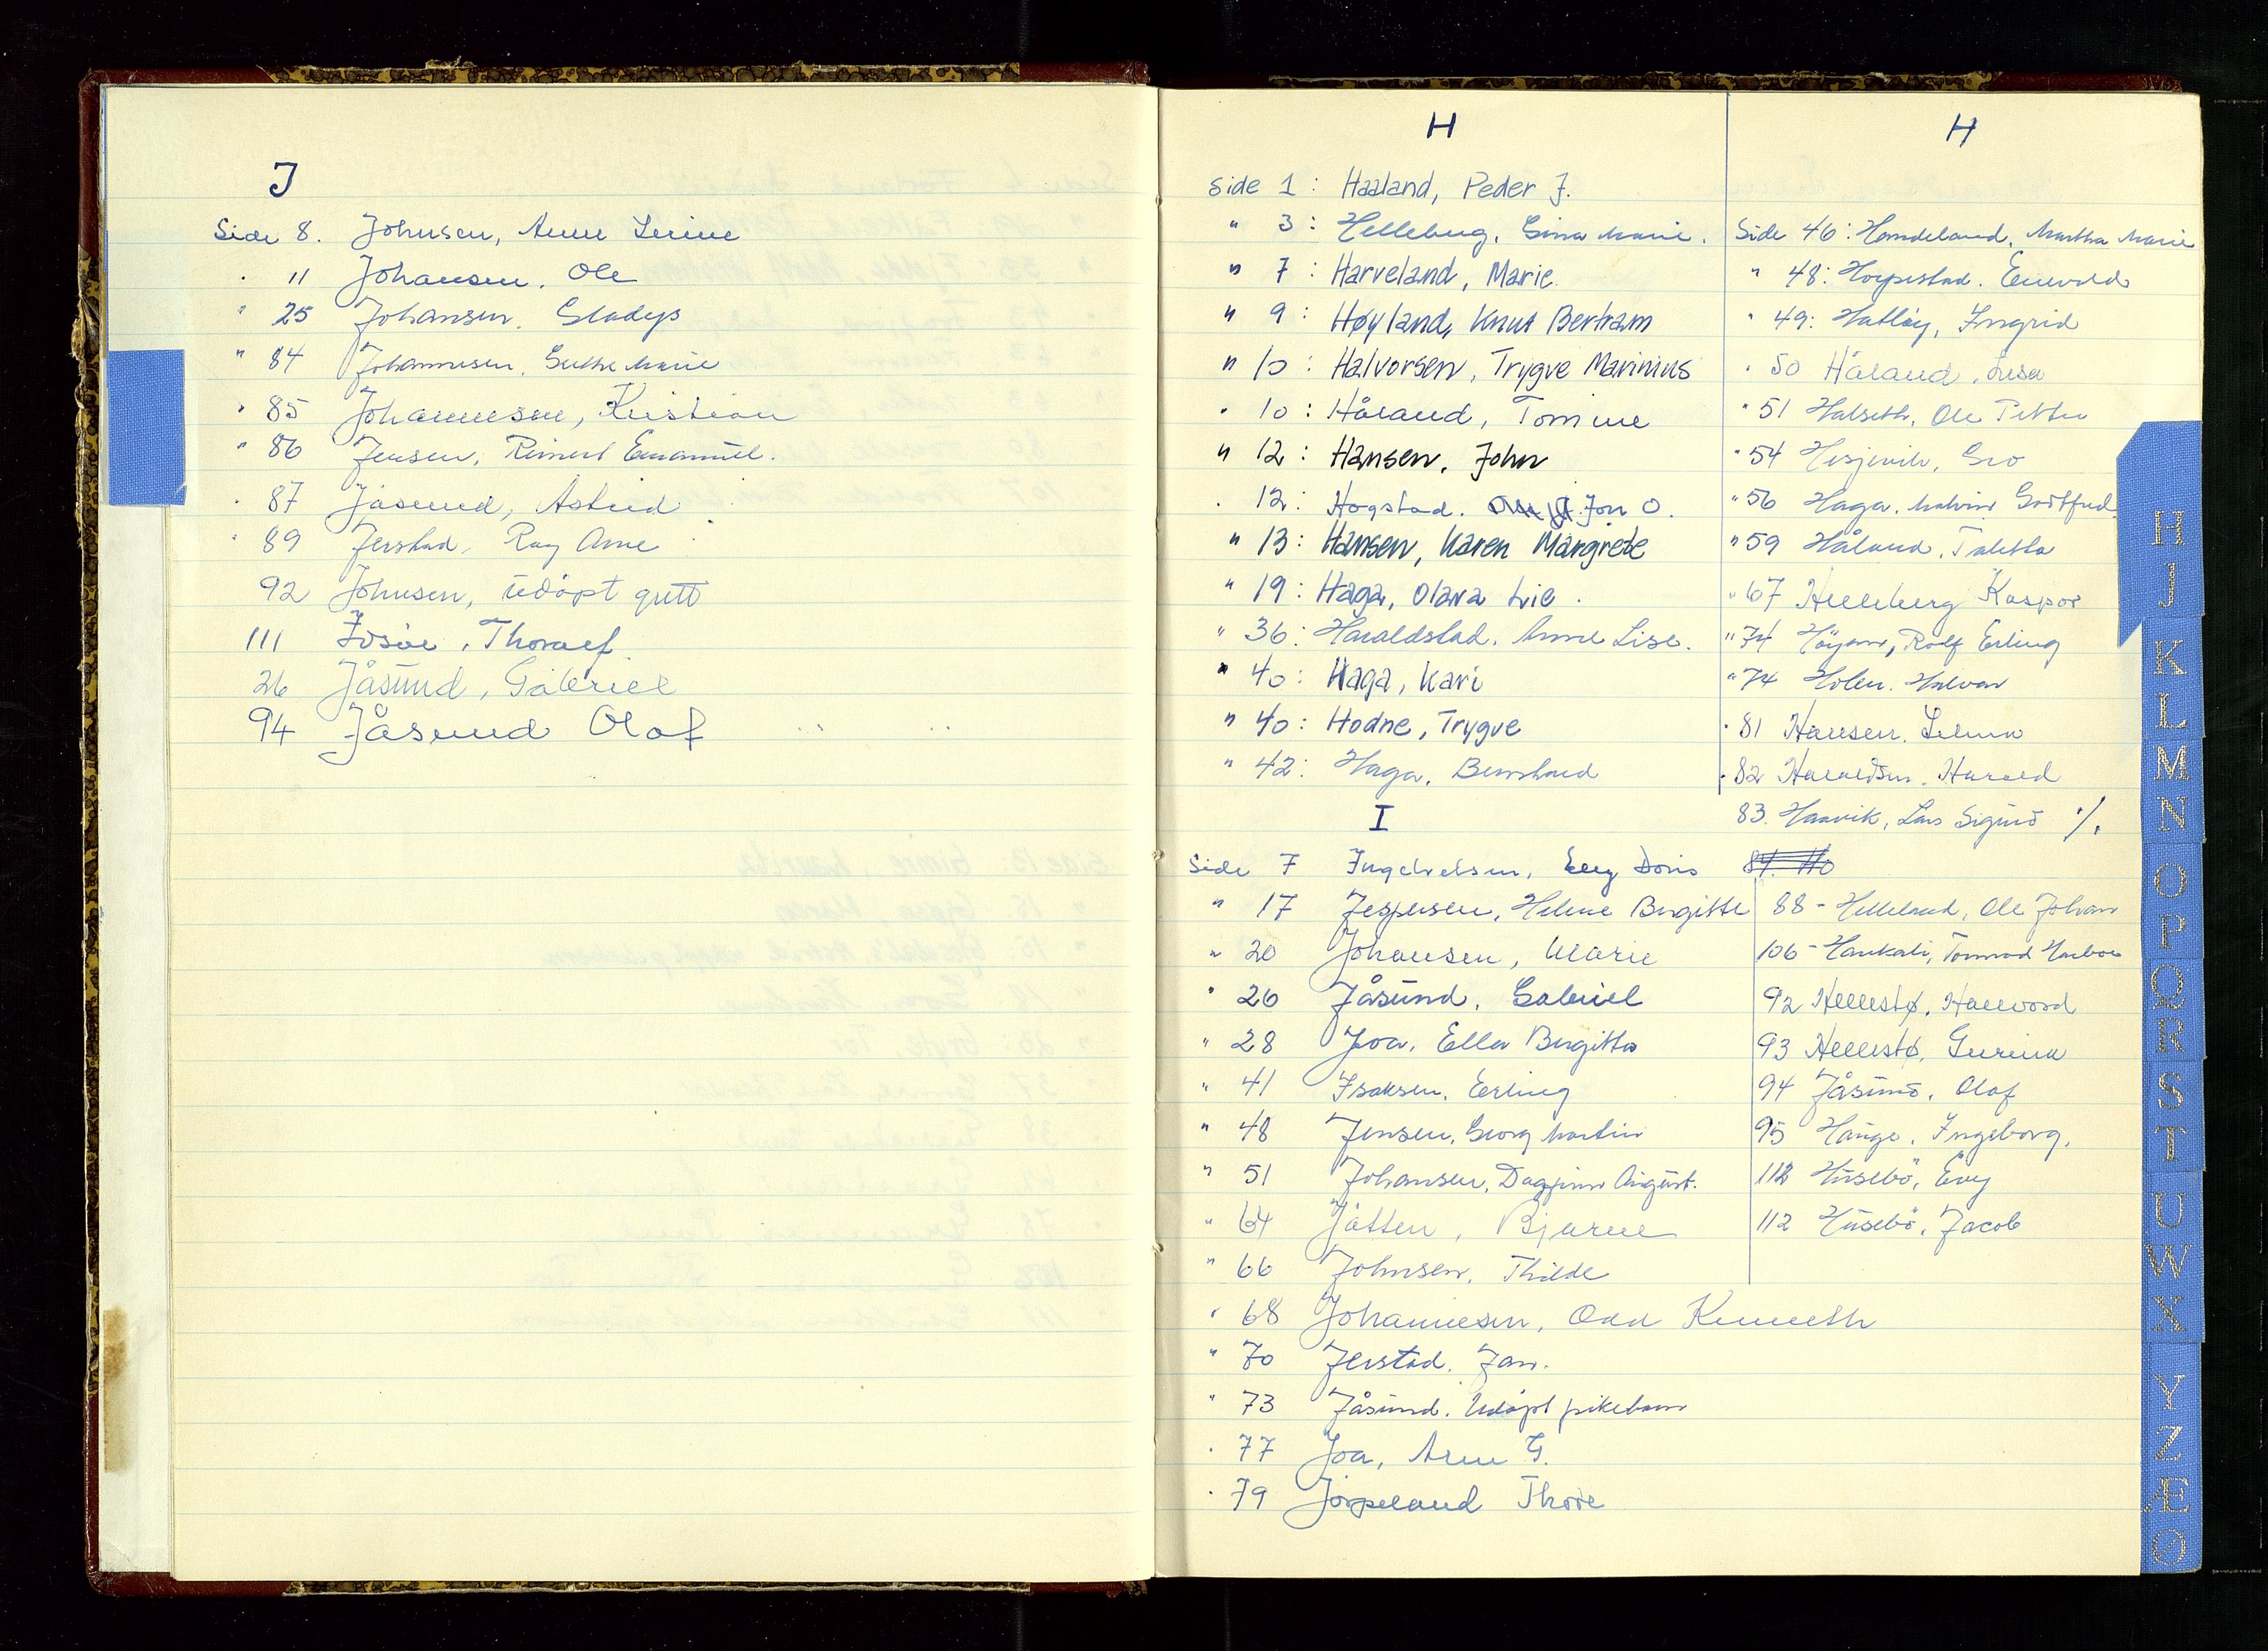 J
Side 8. Johnsen, Anne Serine
" 11 Johansen, Ole
" 25 Johansen, Gladys
" 84 Johannesen, Marie
" 85 Johannesen, Kristian
" 86 Jensen, Reinert Emanuel.
" 87 Jåsund, Astrid
" 89 Jerstad, Roy Arne
92 Johnsen, udöpt gutt
111 Josöe, Thoralf
26 Jåsund, Gabriel
94 Jåsund Olaf
H
Side 1: Haaland, Peder J.
" 3: Helleberg, Gina Marie.
" 7: Harveland, Marie.
" 9: Høyland, Knut Bertram
" 10: Halvorsen, Trygve Marinius
" 10: Håland, Tomine
" 12: Hansen, John
" 12: Hogstad. Jon O.
" 13: Hansen, Karen Margrete
" 19: Haga, Olava Lie.
" 36: Haraldstad. Anne Lise.
" 40: Haga, Kari
" 40: Hodne, Trygve
" 42: Haga, Bernhard
I
Side 7 Ingebretsen, Elly Doris
" 17 Jespersen, Helene Birgitte
" 20 Johansen, Marie
" 26 Jåsund, Gabriel
" 28 Joa, Ella Birgitta
" 41 Isaksen, Erling
" 48 Jensen, Georg Martin
" 51 Johansen, Dagfinn August.
" 64 Jåtten, Bjarne
" 66 Johnsen, Thilde
" 68 Johannesen, Odd Kenneth
" 70 Jerstad. Jan.
" 73 Jåsund. Udöpt pikebarn
" 77 Joa, Arne G.
" 79 Jörpeland Thore
H
Side 46: Homdeland, Martha Marie
" 48: Horpestad. Enevald
" 49: Hatløy, Ingrid
" 50 Håland, Lisa
" 51 Halseth, Ole Petter
" 54 Gro
" 56 Haga, Malvin Gottfred
" 59 Håland, Taletta
" 67 Helleberg Kaspar
" 74 Rolf Erling
" 74 Holen. Halvor
" 81 Hansen. Selma
" 82 Haraldsen. Harald
83. Haavik, Lars Sigurd ./.
84. Ho
88 - Helleland, Ole Johan
106 - Haukali, Tormod
92 Hellestø, Hallvard
93 Hellestø, Gurina
94 Jåsund, Olaf
95 Hauge, Ingeborg.
112 Husebö, Evy
112 Husebö, Jacob
H
J
K
L
M
N
O
P
Q
R
S
T
U
W
X
Y
Z
Æ
Ø